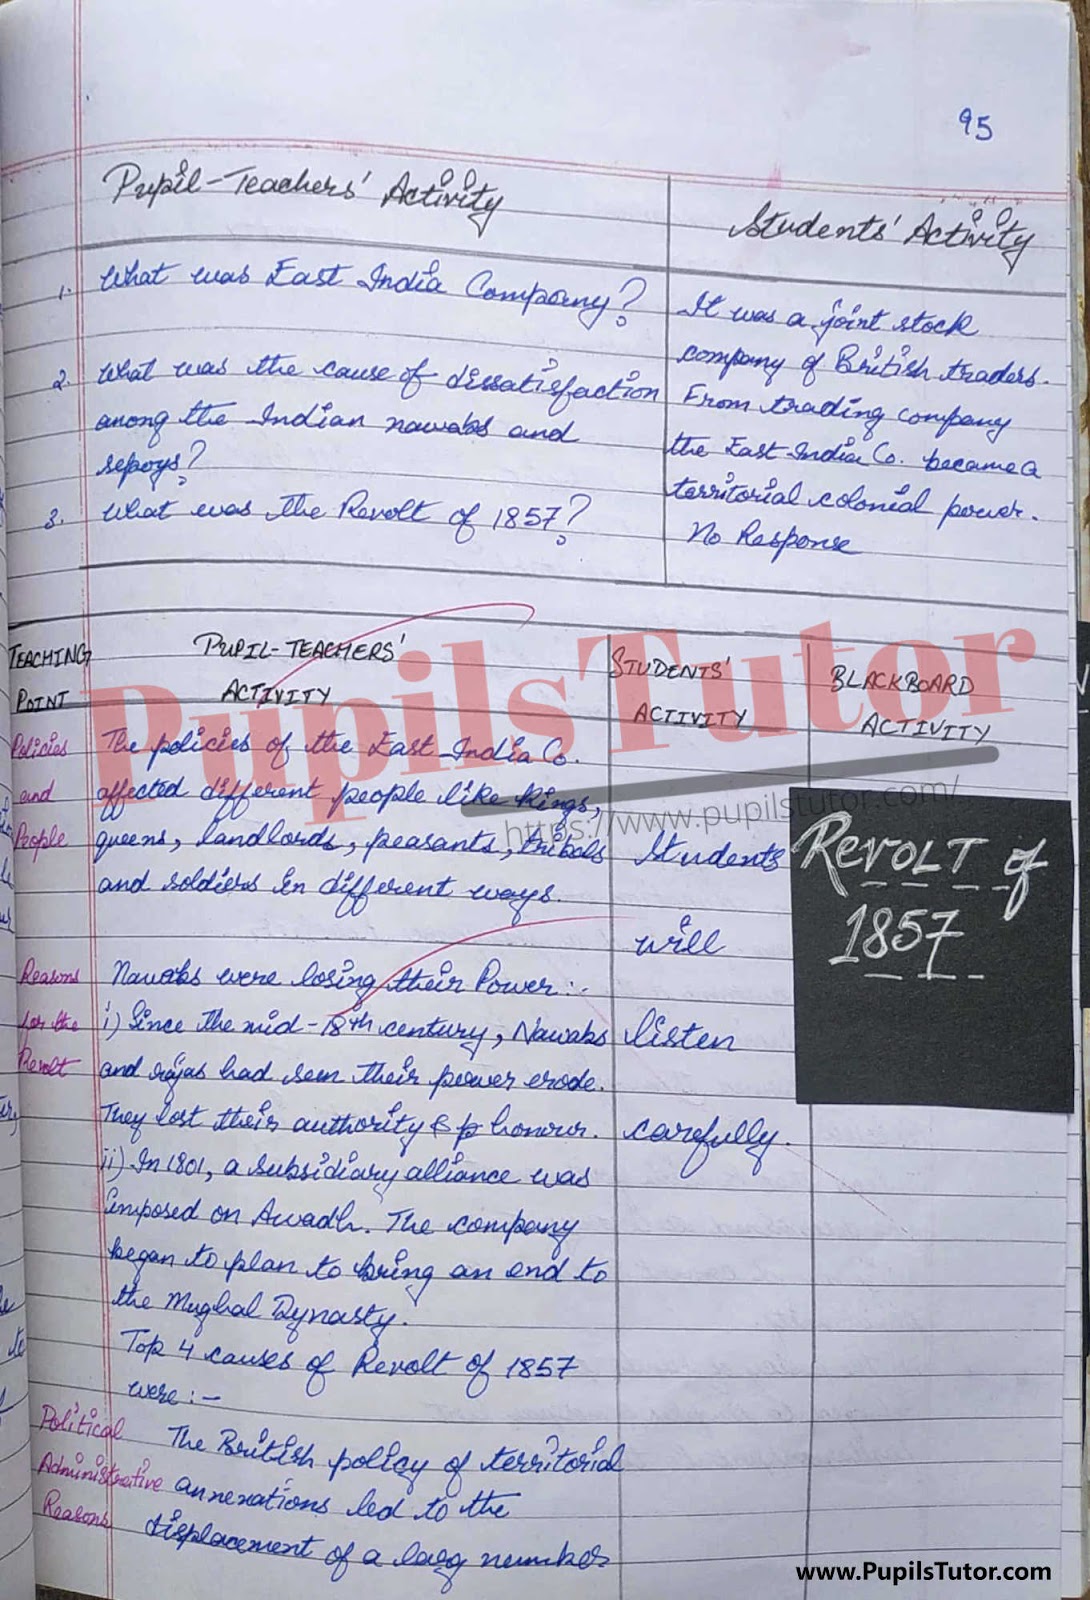 95
Pupil-Teachers' Activity
Students' Activity
1. What was East India Company?
2. What was the cause of dissatisfaction
among the Indian nawabs and
sepoys?
3. What was the Revolt of 1857?
It was a joint stock
company of British traders.
From trading company
the East India Co. became a
territorial colonial power.
No Response
TEACHING
POINT
PUPIL-TEACHERS'
ACTIVITY
STUDENTS'
ACTIVITY
BLACKBOARD
ACTIVITY
PupilsTutor
https://www.pupilstutor.com/
Policies
and
People
The policies of the East India Co.
affected different people like kings,
queens, landlords, peasants, tribals
and soldiers in different ways.
Reasons
for the
Revolt
Nawabs were losing their Power:-
i) Since the mid-18th century, Nawabs
and rajas had seen their power erode.
They lost their authority & honour.
ii) In 1801, a subsidiary alliance was
imposed on Awadh. The company
began to plan to bring an end to
the Mughal Dynasty.
Top 4 causes of Revolt of 1857
were :-
Political
Administrative
Reasons
The British policy of territorial
annexations led to the
displacement of a larg number
Students
will
listen
carefully.
REVOLT of
1857
www.PupilsTutor.com